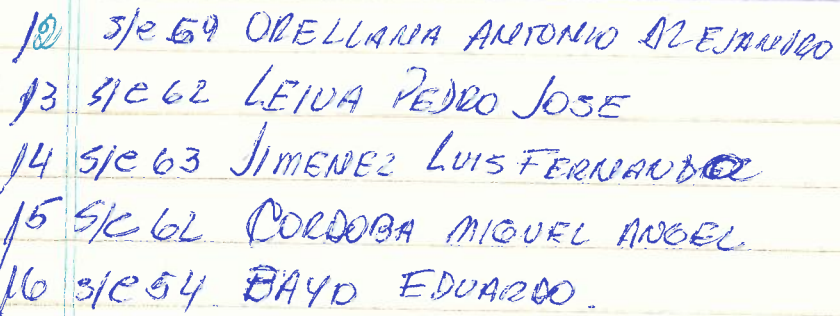 12 S/C 59 ORELLANA ANTONIO ALEJANDRO
13 S/C 62 LEIVA PEDRO JOSE
14 S/C 63 JIMENEZ LUIS FERNANDO
15 S/C 62 CORDOBA MIGUEL ANGEL
16 S/C 54 BAYO EDUARDO.